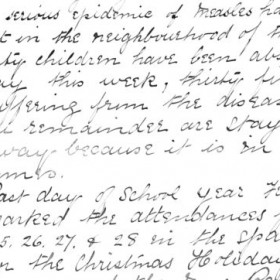 serious epidemic of measles ha
t in the neighbourhood of th
ty children have been abs
ay this week, thirty fi
uffering from the diseas
remainder are stay
way because it is in
omes.
Last day of School year H
marked the attendances
5. 26. 27. & 28 in the spa
n the Christmas Holiday